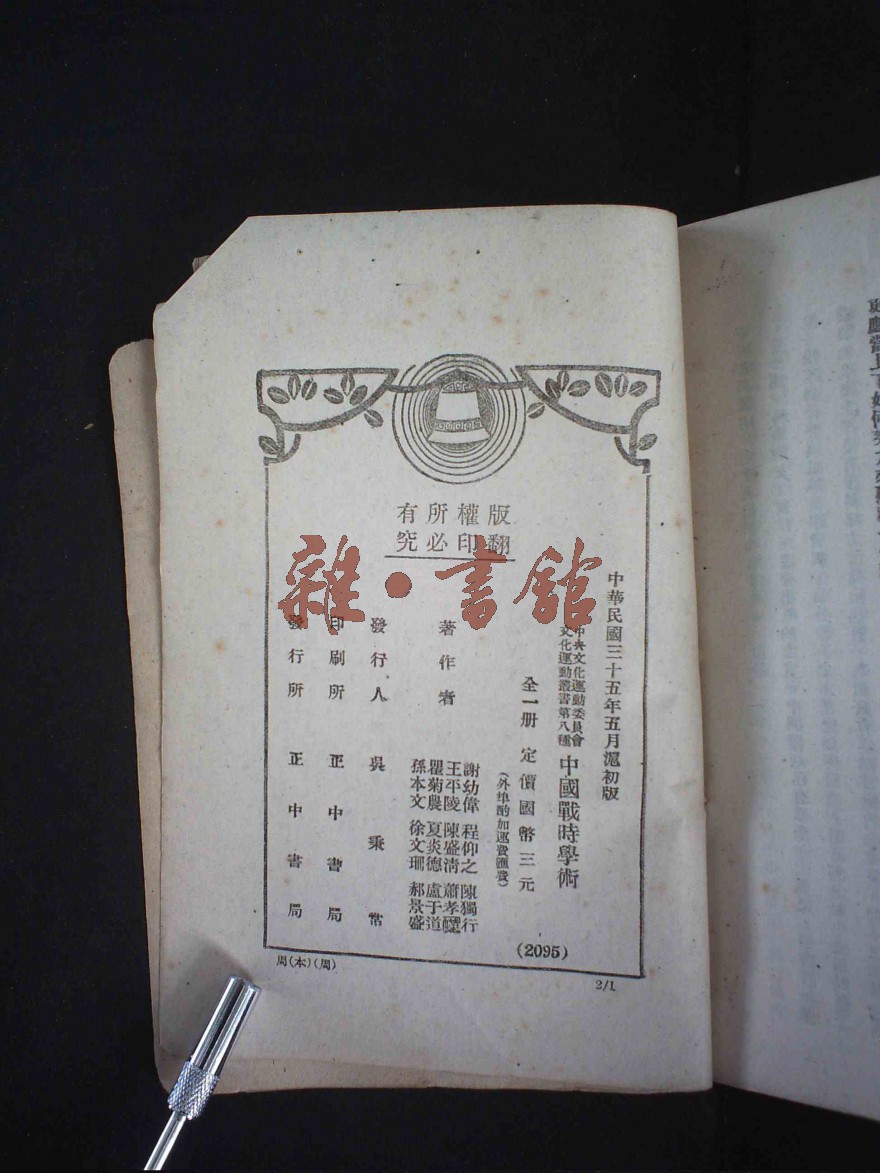 版權所有
翻印必究
中華民國三十五年五月滬初版
中央文化運動委員會
文化運動叢書第八種
中國戰時學術
全一册 定價國幣三元
(外埠酌加運費匯費)
著作者
謝幼偉 程仰之 陳獨行
王平陵 陳盛清 蕭孝嶸
瞿菊農 夏炎德 盧于道
孫本文 徐文珊 郝景盛
發行人 吳秉常
印刷所 正中書局
發行所 正中書局
(2095)
周(本)(周)
2/1
雜·書館